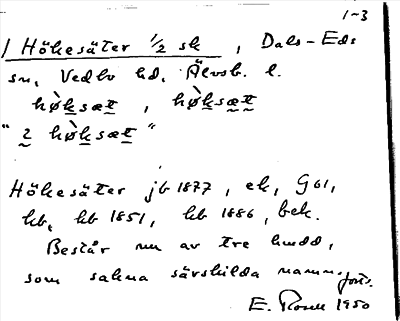 1-3
1 Hökesäter 1/2 sk, Dals-Eds
sn, Vedbo hd, Älvsb. l.
hø̀ksæt, hø̀ksæt
"2 hø̀ksæt"
Hökesäter jb 1877, ek, G61,
kb, kb 1851, kb 1886, bek.
Består nu av tre hmdd,
som sakna särskilda namn.
forts.
E. 1950